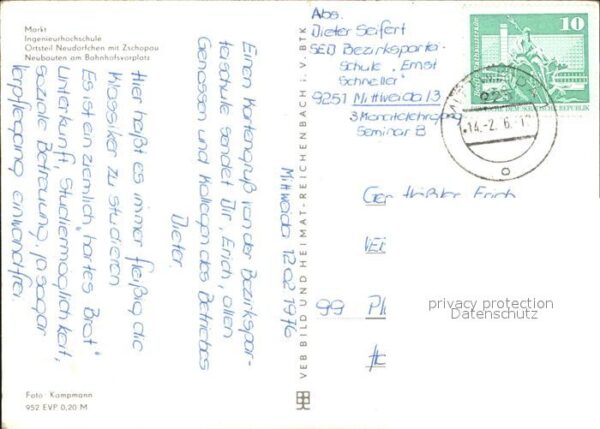 Markt
Ingenieurhochschule
Ortsteil Neudörfchen mit Zschopau
Neubauten am Bahnhofsvorplatz
Mittweida 12.02.1976
Einen Kartengruß von der Bezirkspar-
teischule sendet Dir, Erich, allen
Genossen und Kollegen des Betriebes
Dieter.
Hier heißt es immer fleißig die
Klassiker zu studieren
Es ist ein ziemlich "hartes Brot"
Unterkunft, Studiermöglichkeit,
soziale Betreuung, ja sogar
Verpflegung einwandfrei
Foto: Kampmann
952 EVP 0,20 M
VEB BILD UND HEIMAT-REICHENBACH i. V. BTK
Abs.
Dieter Seifert
SED Bezirkspartei
Schule "Ernst
Schneller"
9251 Mittweida 13
3 Monatelehrgang
Seminar B
10
DEUTSCHE DEMOKRATISCHE REPUBLIK
14.-2.
Erich
99
privacy protection
Datenschutz